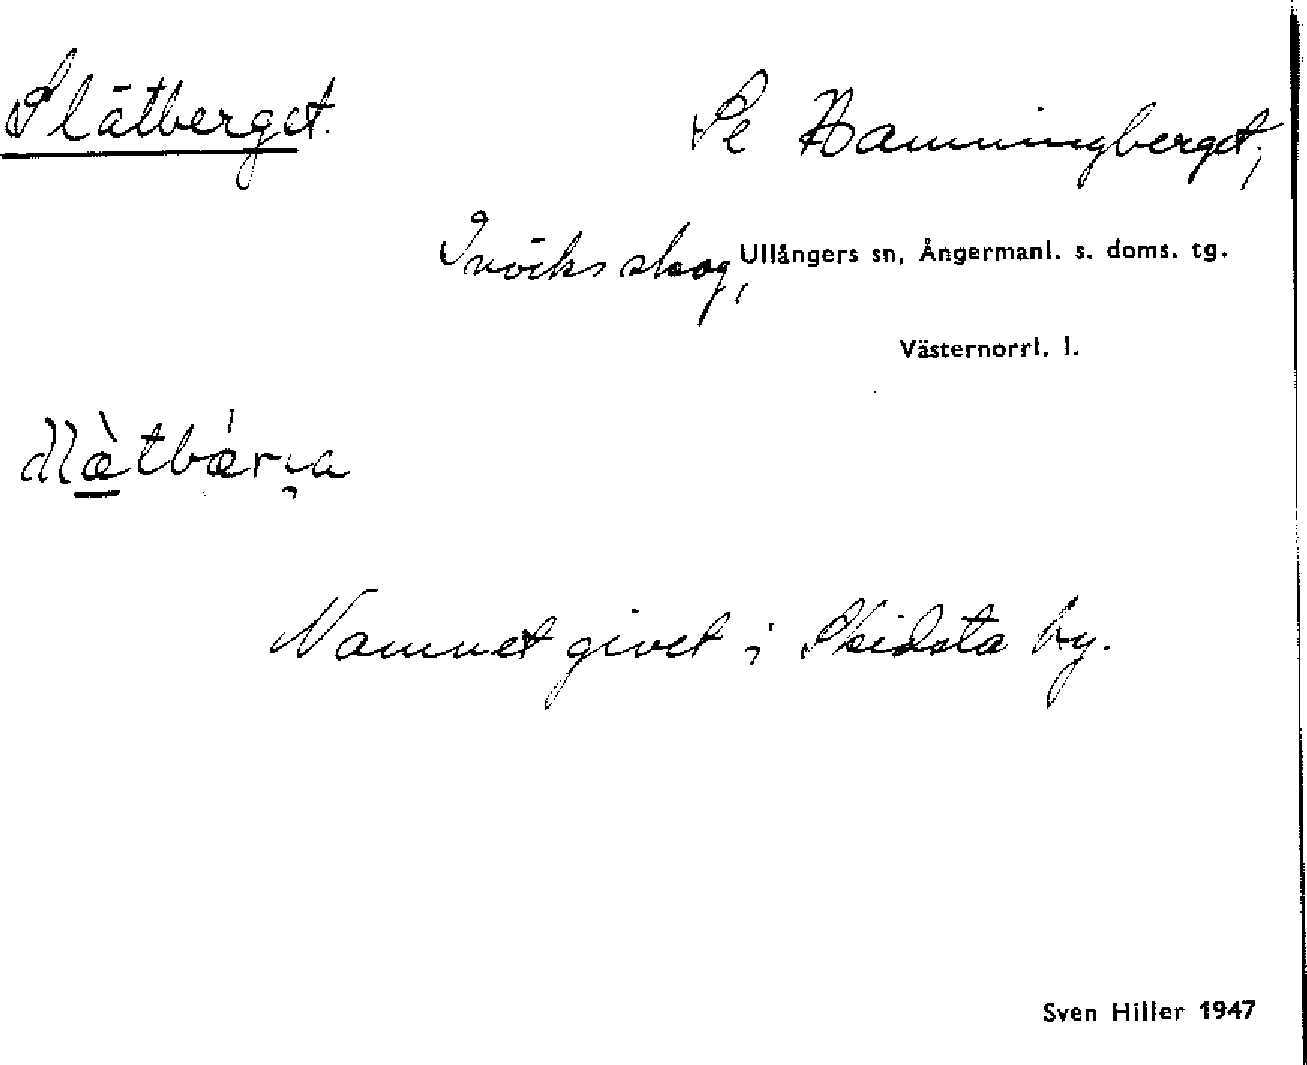 Slätberget.
Se Hamningberget;
Inviks skog, Ullångers sn, Ångermanl. s. doms. tg.
Västernorrl. l.
Namnet givet i Skidsta by.
Sven Hiller 1947